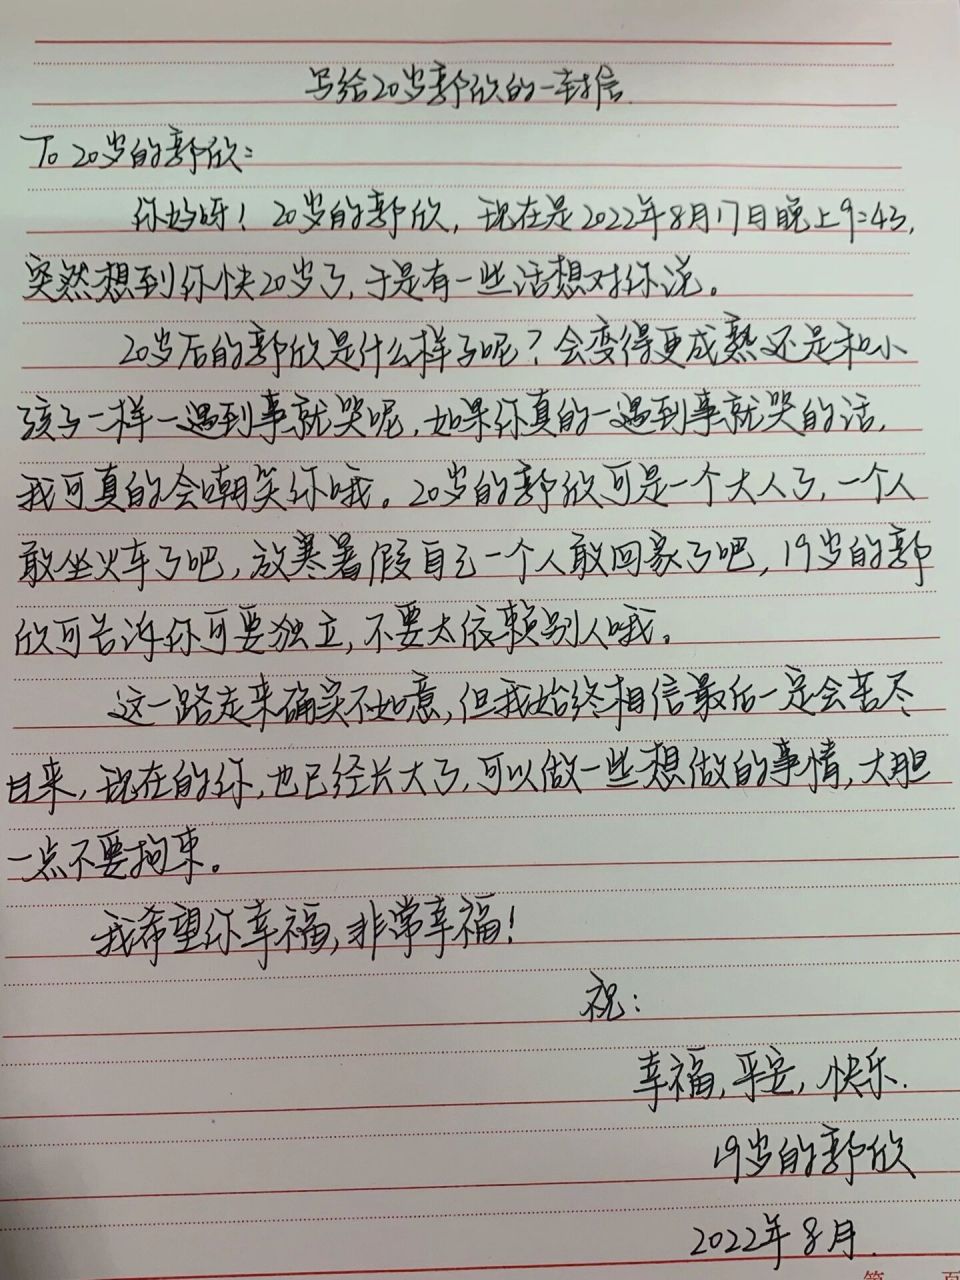 写给20岁郭欣的一封信.
To 20岁的郭欣:
你好呀！20岁的郭欣，现在是2022年8月17日晚上9:43,
突然想到你快20岁了,于是有一些话想对你说。
20岁后的郭欣是什么样子呢？会变得更成熟还是和小
孩子一样一遇到事就哭呢,如果你真的一遇到事就哭的话,
我可真的会嘲笑你哦。20岁的郭欣可是一个大人了,一个人
敢坐火车了吧,放寒暑假自己一个人敢回家了吧,19岁的郭
欣可告诉你可要独立,不要太依赖别人哦。
这一路走来确实不如意,但我始终相信最后一定会苦尽
甘来,现在的你,也已经长大了,可以做一些想做的事情,大胆
一点不要拘束。
我希望你幸福,非常幸福！
祝：
幸福,平安,快乐.
19岁的郭欣
2022年8月.
第 页